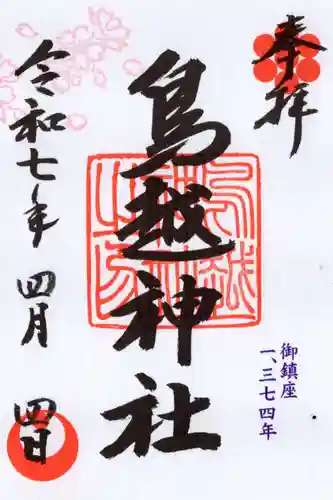 奉拝
鳥越神社
御鎮座
一、三七四年
令和七年 四月 四日